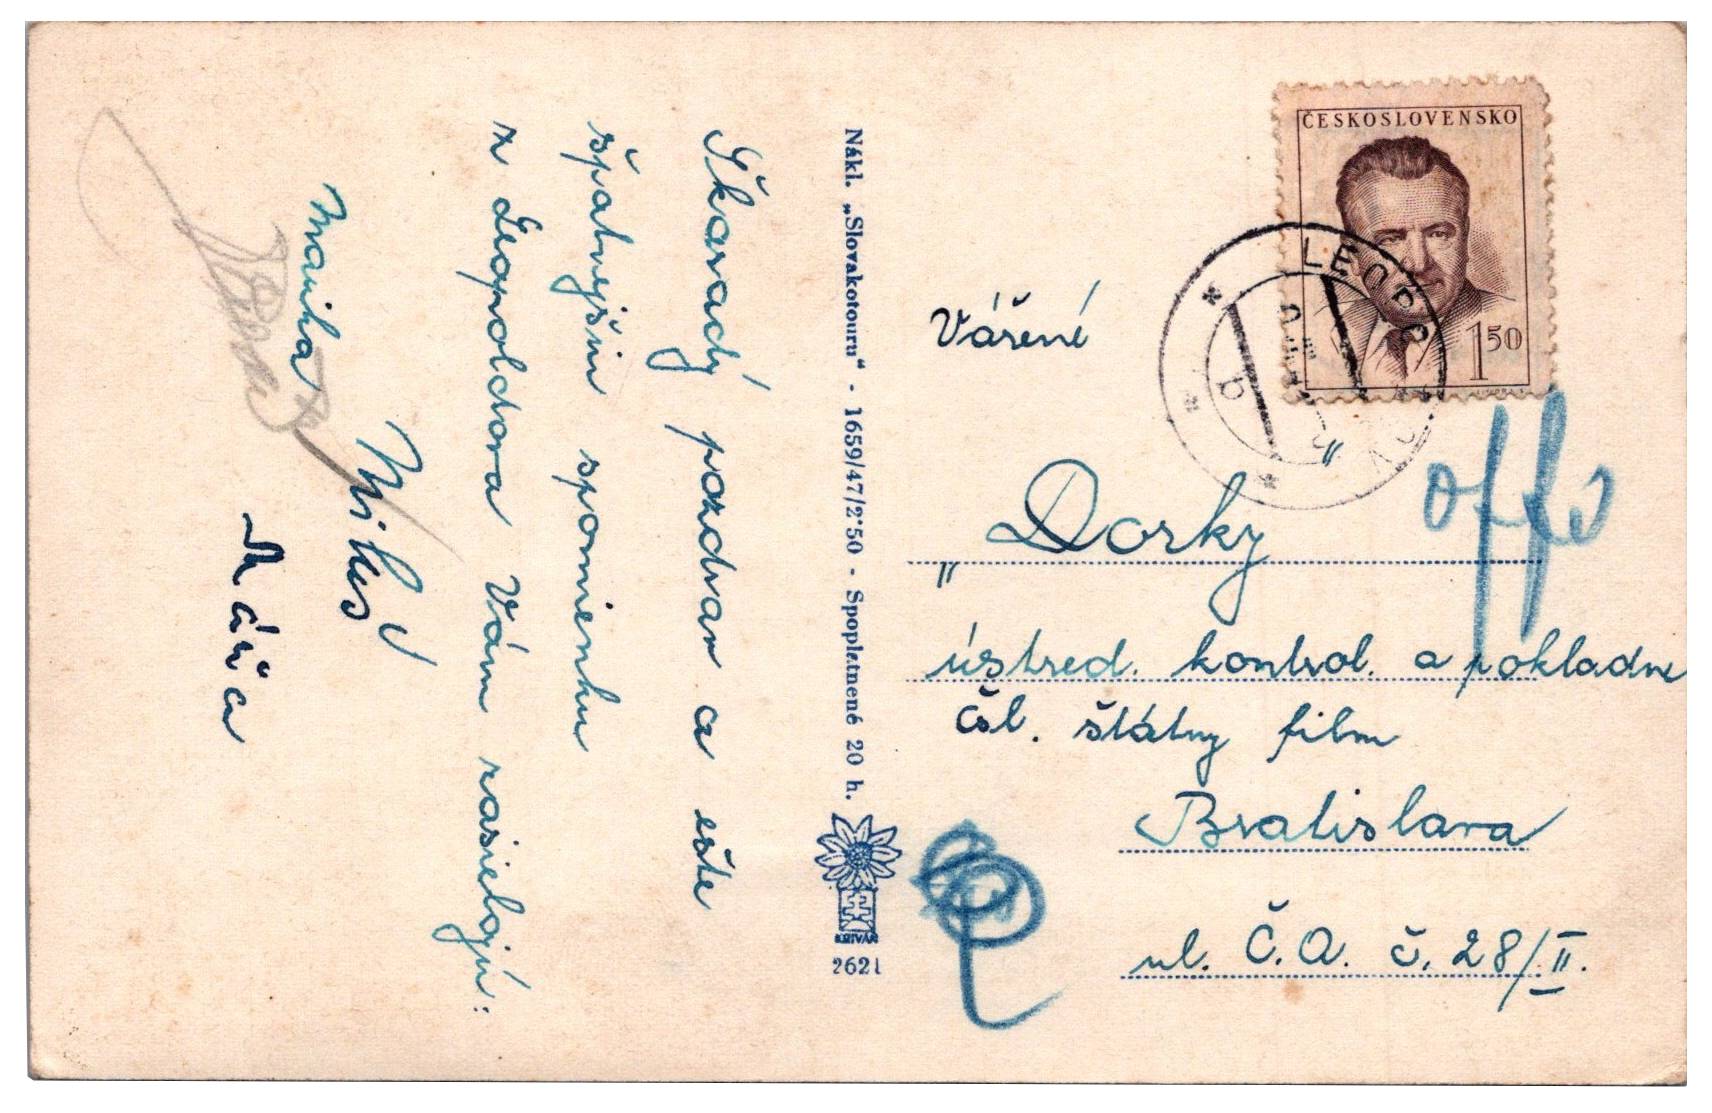 Škaradý pozdrav a ešte
špatnejšiu spomienku
z Leopoldova Vám zasielajú:
Marika
Mikuš
Mářia
Nákl. „Slovakotouru“ - 1659/47/2·50 - Spoplatnené 20 h.
KRIVÁŇ
2621
ČESKOSLOVENSKO
1 50
LEOPOLDOV
b
Vážené
„Dorky“
ústred. kontrol. a pokladne
Čsl. štátny film
Bratislava
ul. Č.A. č. 28/II.